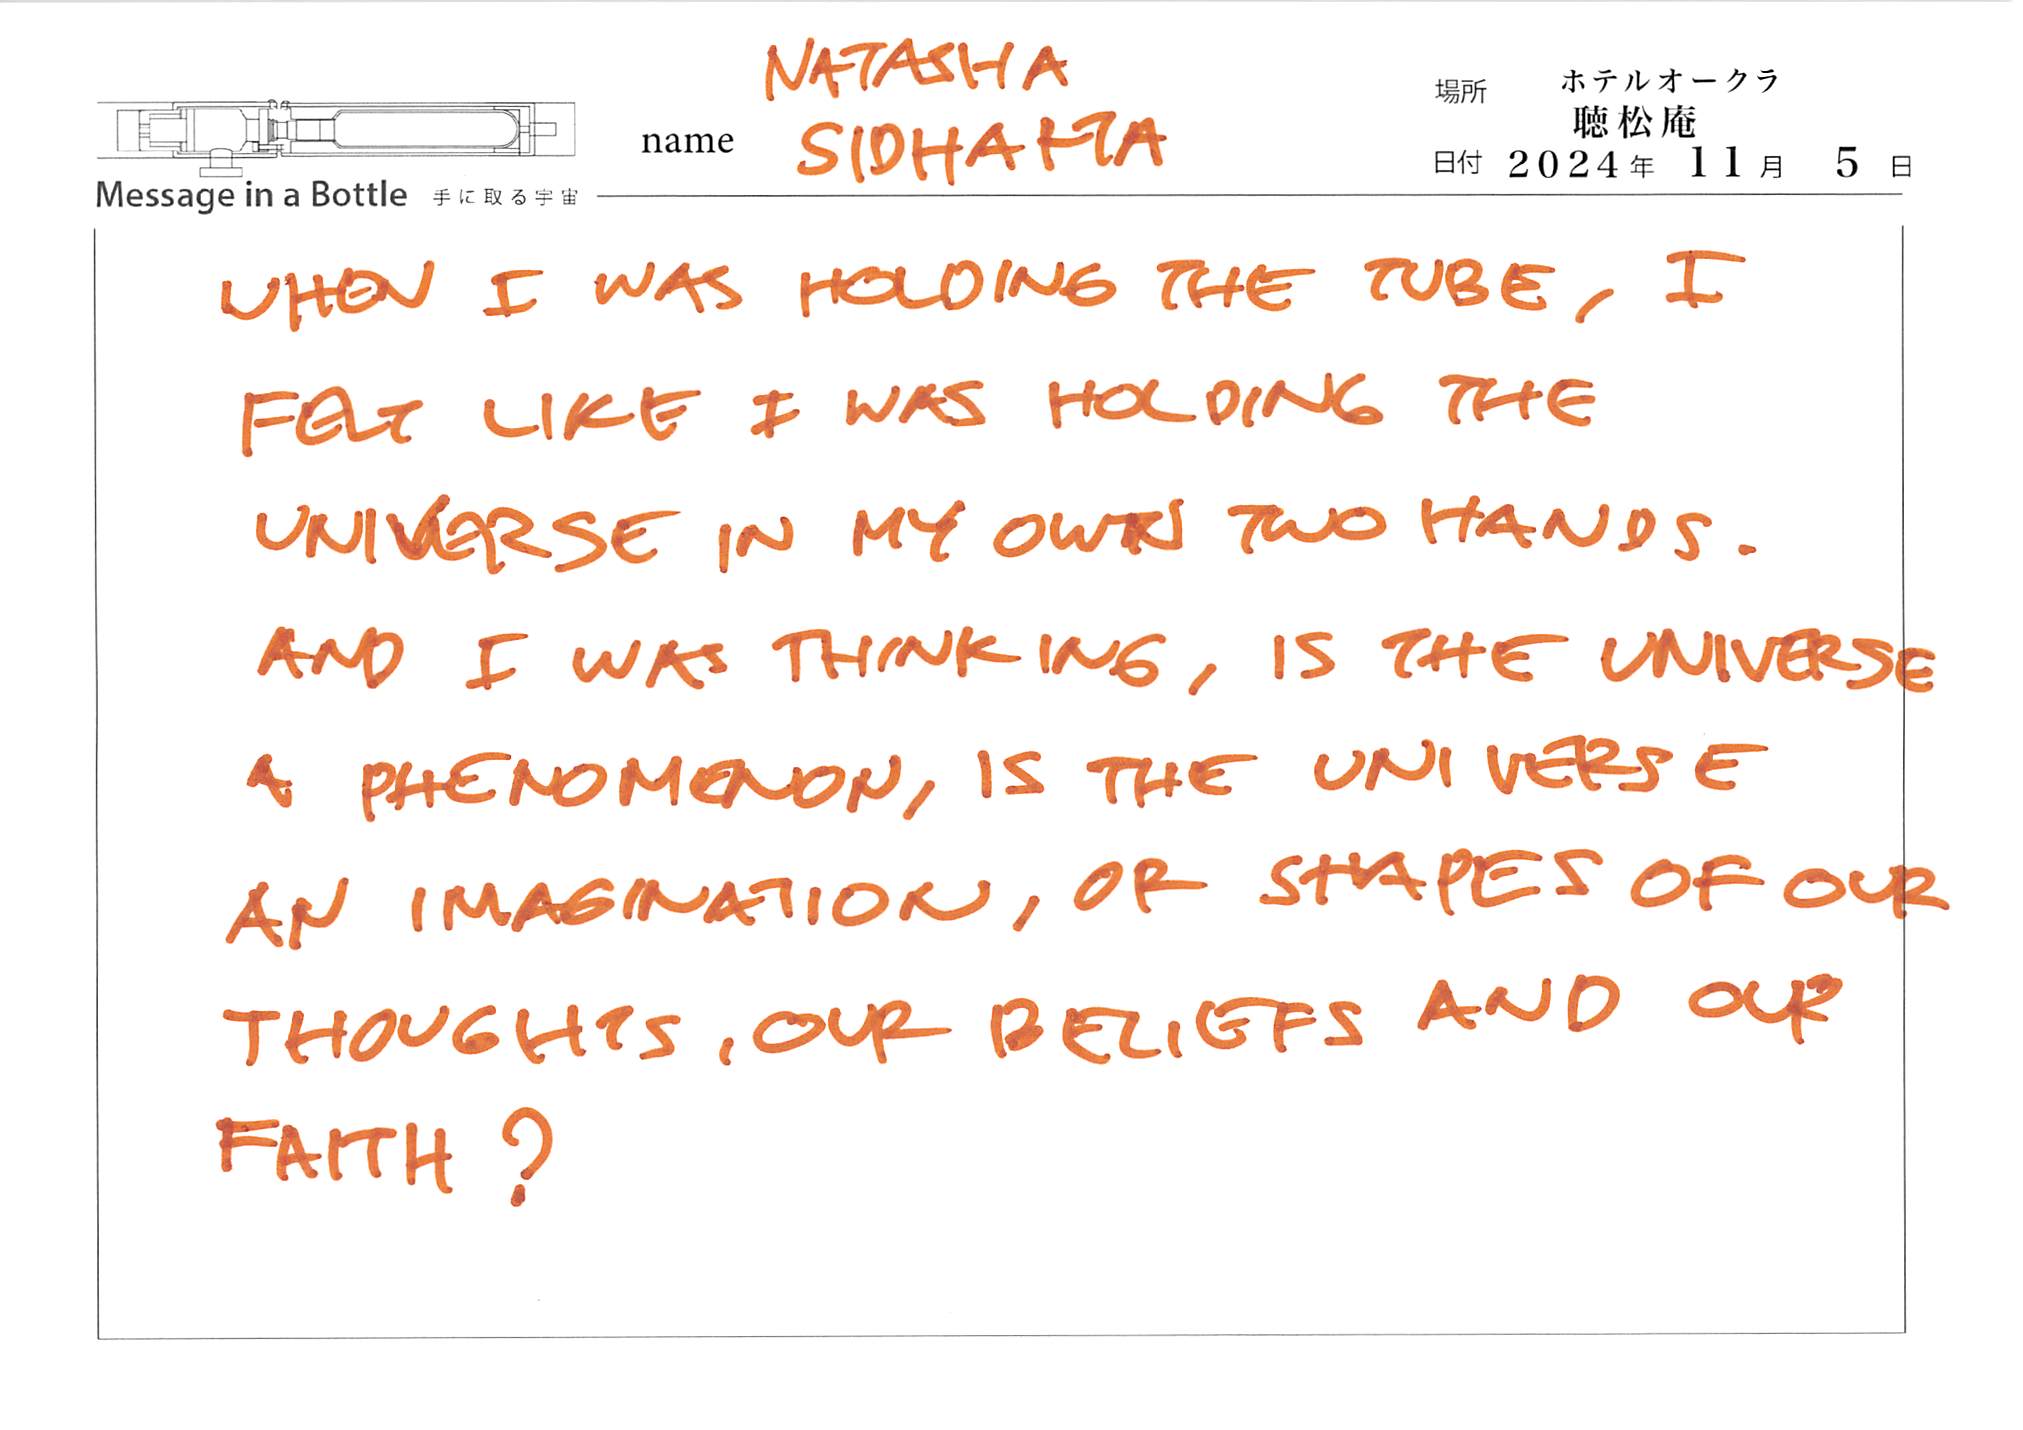 NATASHA
name SIDHARTA
場所 ホテルオークラ
聴松庵
日付 2024年 11月 5日
Message in a Bottle 手に取る宇宙
WHEN I WAS HOLDING THE TUBE, I
FELT LIKE I WAS HOLDING THE
UNIVERSE IN MY OWN TWO HANDS.
AND I WAS THINKING, IS THE UNIVERSE
A PHENOMENON, IS THE UNIVERSE
AN IMAGINATION, OR SHAPES OF OUR
THOUGHTS, OUR BELIEFS AND OUR
FAITH?